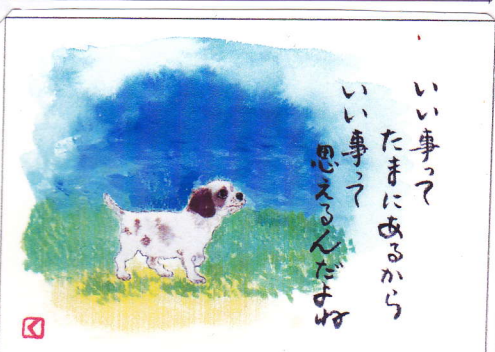 いい事って
たまにあるから
いい事って
思えるんだよね
く